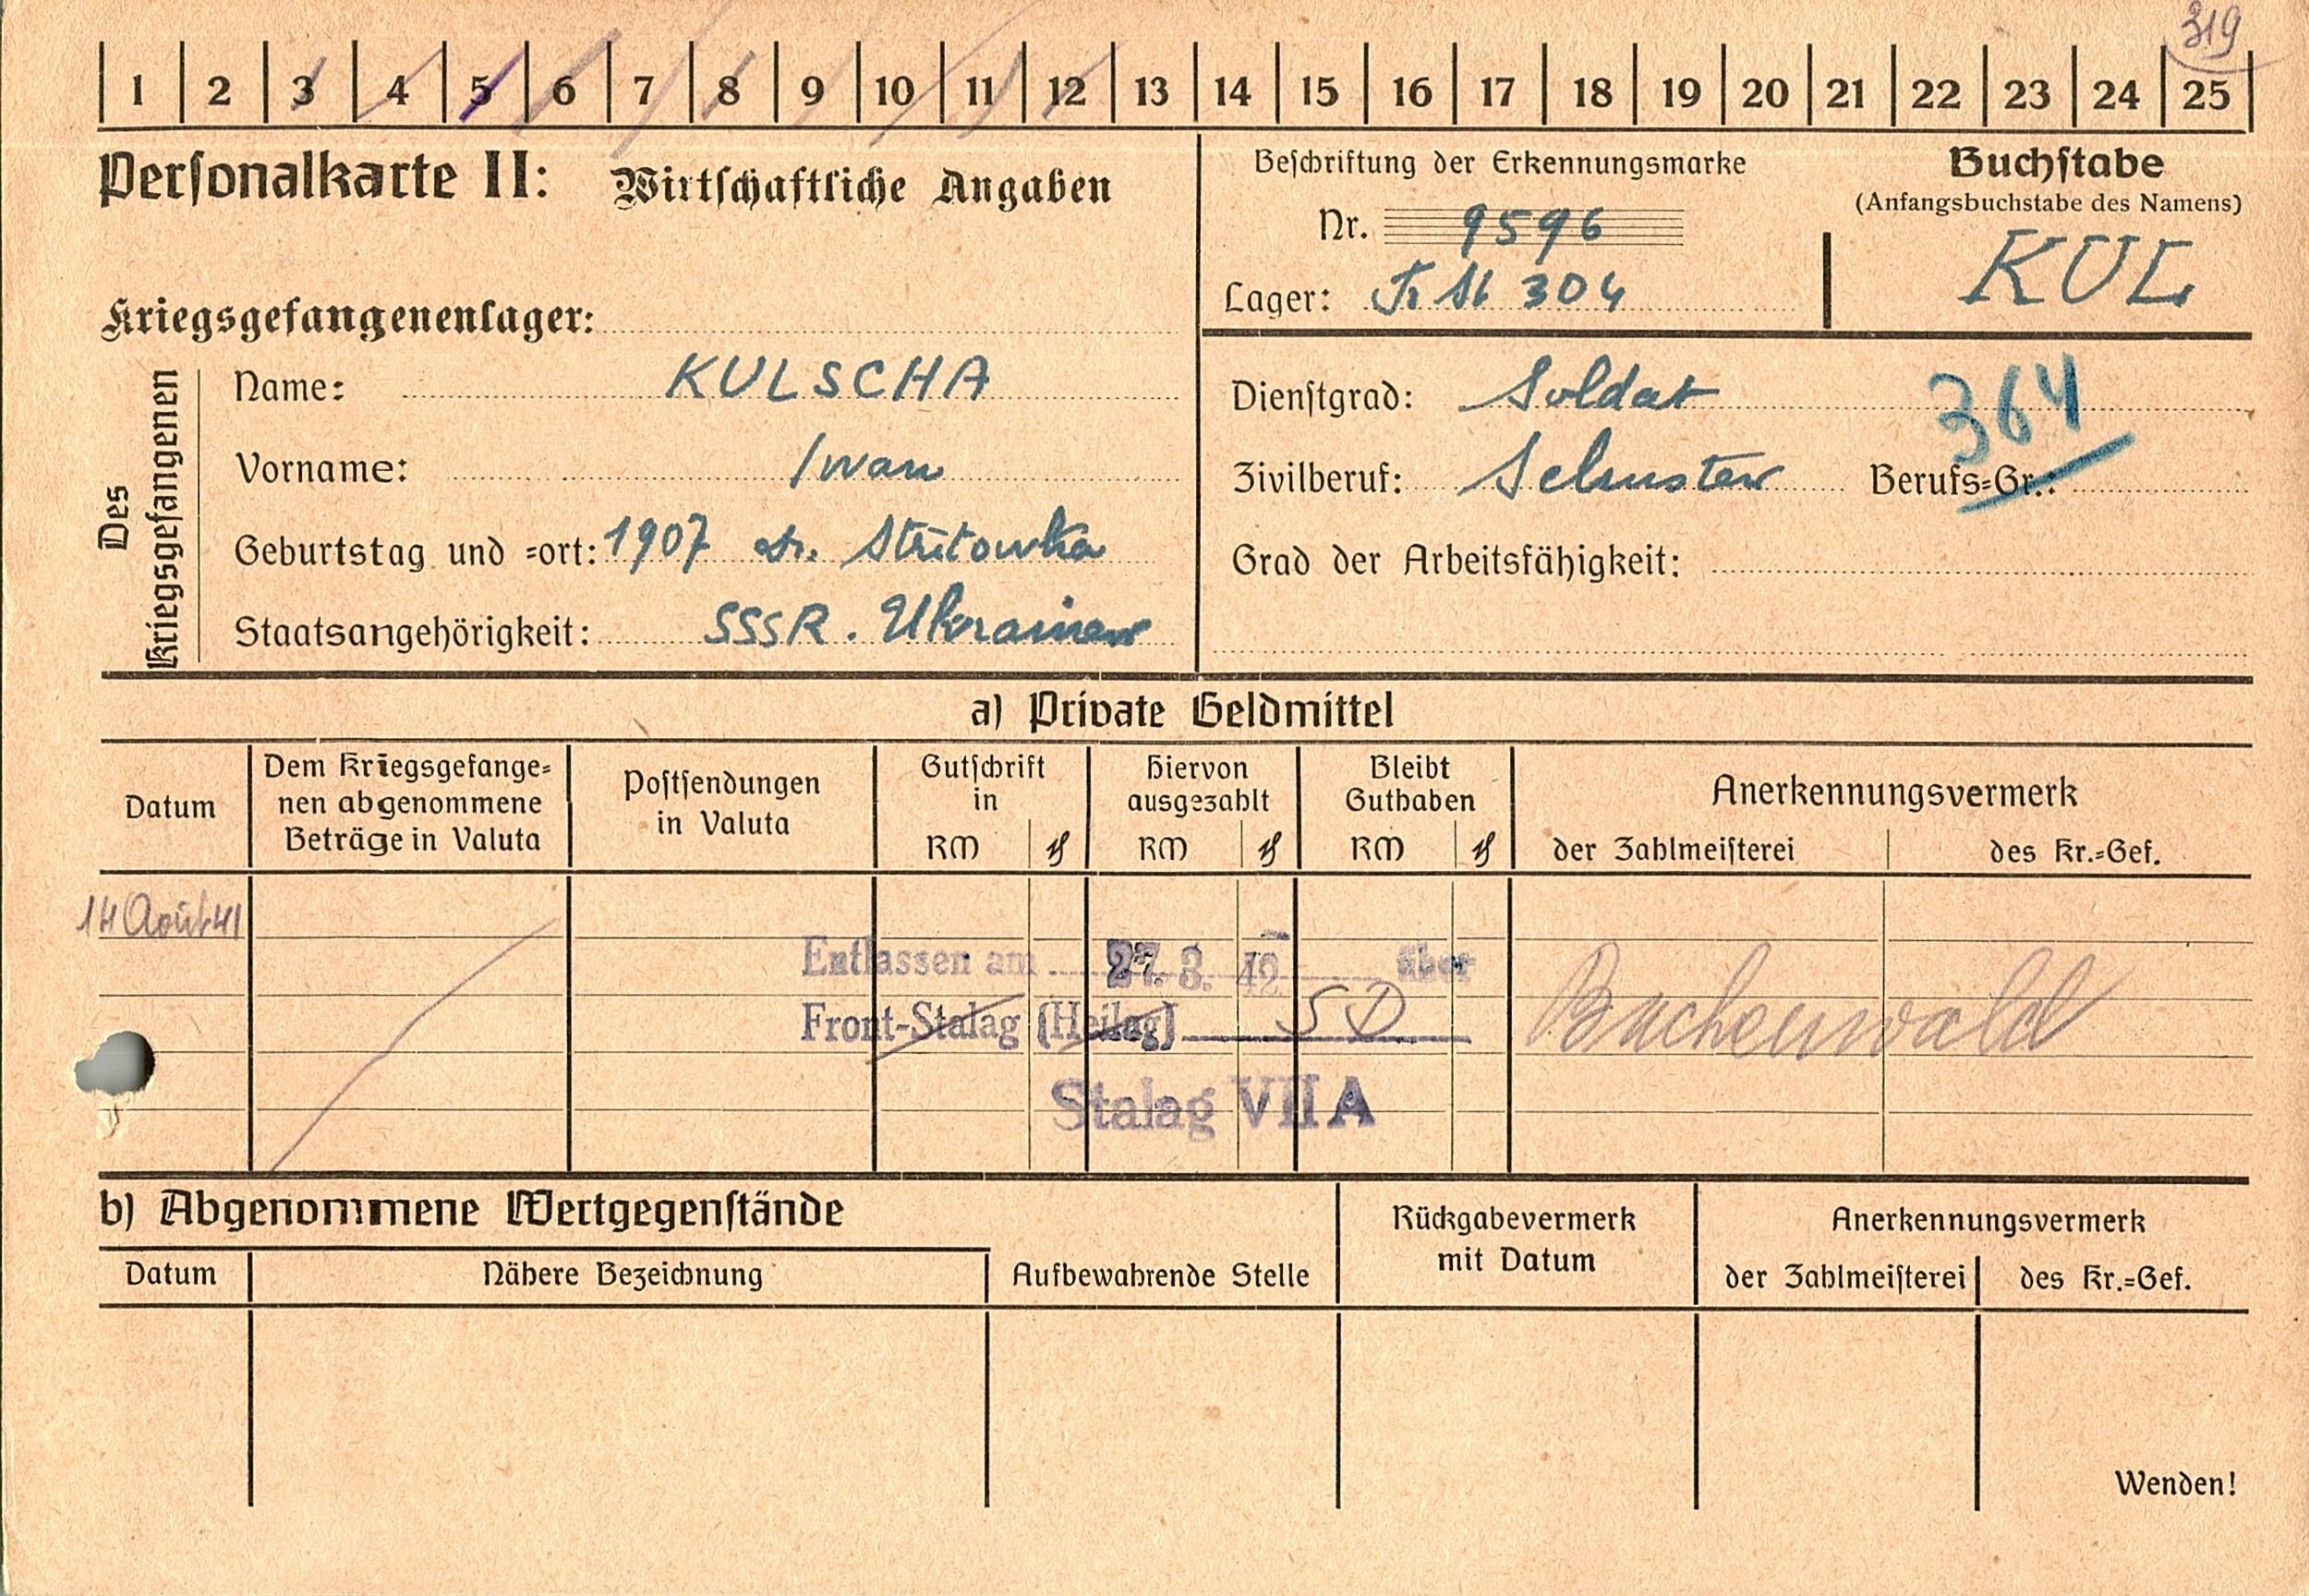 319
1 2 3 4 5 6 7 8 9 10 11 12 13 14 15 16 17 18 19 20 21 22 23 24 25
Personalkarte II: Wirtschaftliche Angaben
Beschriftung der Erkennungsmarke
Nr. 9596
Lager: 304
Buchstabe
(Anfangsbuchstabe des Namens)
KUL
Kriegsgefangenenlager:
Des Kriegsgefangenen
Name: KULSCHA
Vorname: Iwan
Geburtstag und =ort: 1907 Stritowka
Staatsangehörigkeit: SSSR. Ukrainer
Dienstgrad: Soldat
364
Zivilberuf: Schuster Berufs=Gr.:
Grad der Arbeitsfähigkeit:
a) Private Geldmittel
Datum
Dem Kriegsgefange=
nen abgenommene
Beträge in Valuta
Postsendungen
in Valuta
Gutschrift
in
RM ₰
Hiervon
ausgezahlt
RM ₰
Bleibt
Guthaben
RM ₰
Anerkennungsvermerk
der Zahlmeisterei des Kr.=Gef.
14 Août 41
Entlassen am 27. 3. 42 über
Front-Stalag (Heilag) SD Buchenwald
Stalag VII A
b) Abgenommene Wertgegenstände
Datum
Nähere Bezeichnung
Aufbewahrende Stelle
Rückgabevermerk
mit Datum
Anerkennungsvermerk
der Zahlmeisterei des Kr.=Gef.
Wenden!